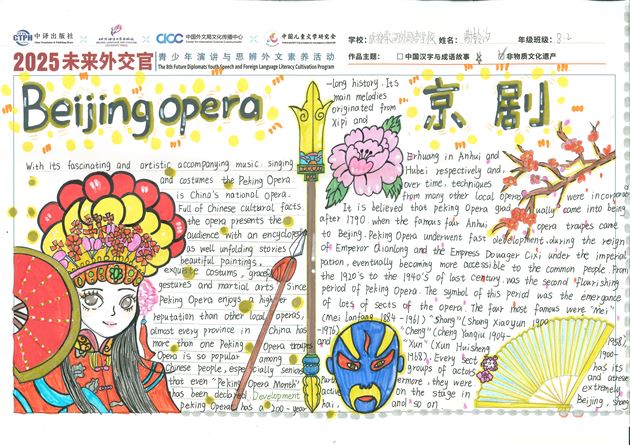 CTPH 中译出版社
CICC 中国外文局文化传播中心
中国儿童文学研究会
学校:
姓名:
年级班级: 8.2
2025未来外交官
青少年演讲与思辨外文素养活动
The 8th Future Diplomats Youth Speech and Foreign Language Literacy Cultivation Program
作品主题: 中国汉字与成语故事 非物质文化遗产
Beijing opera
京剧
With its fascinating and artistic accompanying music, singing
and costumes the Peking Opera
is China's national opera.
Full of Chinese cultural facts
the opera presents the
audience with an encyclopedia
as well unfolding stories
beautiful paintings,
exquisite costums, graceful
gestures and martial arts. Since
Peking Opera enjoys a higher
reputation than other local operas,
almost every province in China has
more than one Peking Opera troupes
Opera is so popular among
Chinese people, especially seniors
that even "Peking Opera Month"
has been declared Development
peking Opera has a 200-year
-long history. Its
main melodies
originated from
Xipi and
Erhuang in Anhui and
Hubei respectively and,
over time, techniques
from many other local operas were incorporated
It is believed that peking Opera gradually came into being
after 1790 when the famous four Anhui opera troupes came
to Beijing. Peking Opera underwent fast development during the reign
of Emperor Qianlong and the Empress Dowager Cixi under the imperial
patron, eventually becoming more accessible to the common people. From
the 1920's to the 1940's of last century was the second flourishing
period of peking Opera. The symbol of this period was the emergence
of lots of sects of the opera. The four most famous were "Mei"
(Mei Lanfang 1894-1961) "Shang" (Shang Xiaoyun 1900-
1976) Cheng" (Cheng Yanqiu 1904- 1958),
and "Xun" (Xun Huisheng 1900-
1968). Every sect has its
groups of actors and
more, they were extremely
active on the stage in Beijing, Shang
hai, and so on